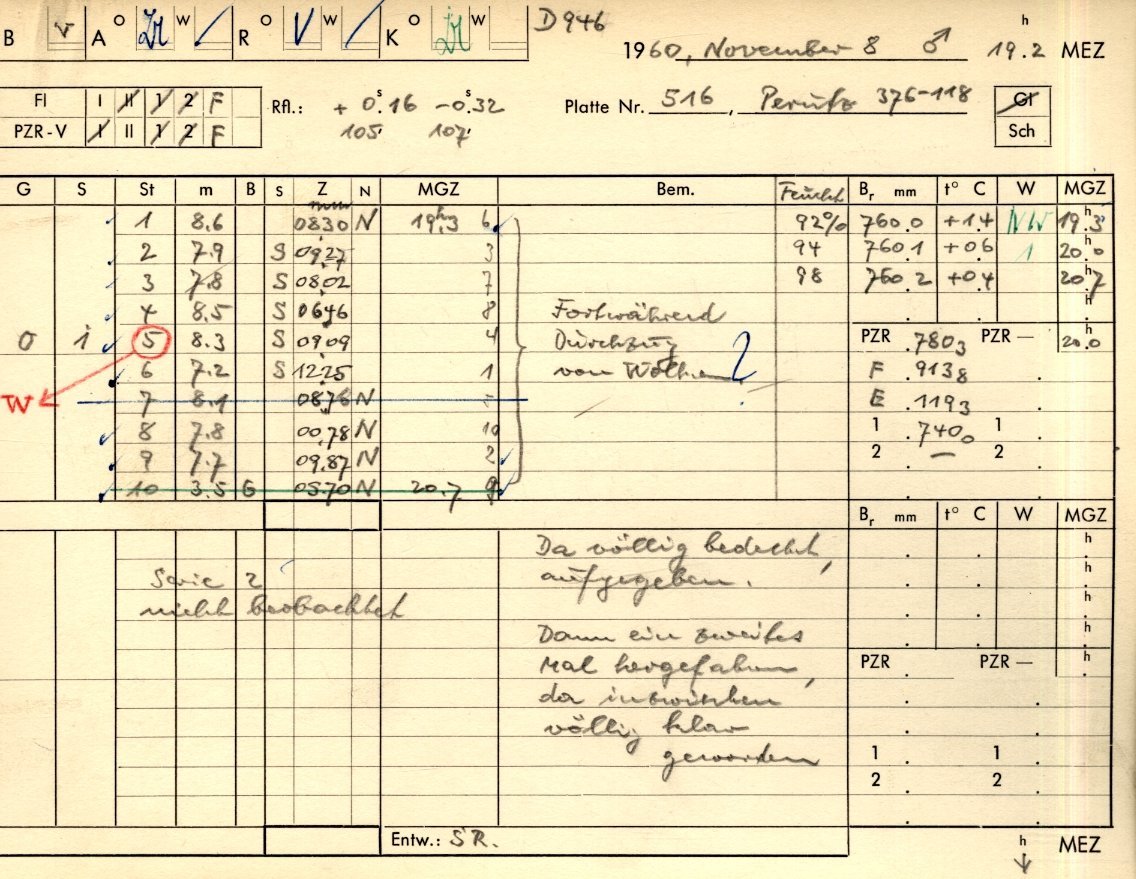 D 946
B v A O W R O V W K O W
1960, November 8 ♂ 19.2 h MEZ
Fl I II 1 2 F Rfl.: + 0.ˢ16 -0.ˢ32 Platte Nr. 516, Perutz 376-118 Gl
PZR-V I II 1 2 F 105 107 Sch
G S St m B S Z N MGZ Bem. Feucht Br mm t° C W MGZ
mm
1 8.6 0830 N 19ʰ.3 6 92% 760.0 +1.4 NW 19.3
2 7.9 S 0927 3 94 760.1 +0.6 1 20.0 h
3 7.8 S 0802 7 98 760.2 +0.4 20.7 h
4 8.5 S 0646 8 Fortwährend h
0 1 5 8.3 S 0909 4 Durchzug PZR .7803 PZR — 20.0 h
6 7.2 S 1225 1 von Wolken ? F .9138
W 7 8.1 0876 N E .1193
8 7.8 00.78 N 10 1 .7400 1
9 7.7 09.87 N 2 2 2
10 3.5 G 0570 N 20.7 9
Br mm t° C W MGZ
Da völlig bedeckt, h
Serie 2 aufgegeben. h
nicht beobachtet h
Dann ein zweites h
Mal hergefahren, PZR PZR — h
da inzwischen
völlig klar
geworden 1 1
2 2
Entw.: SR. h MEZ